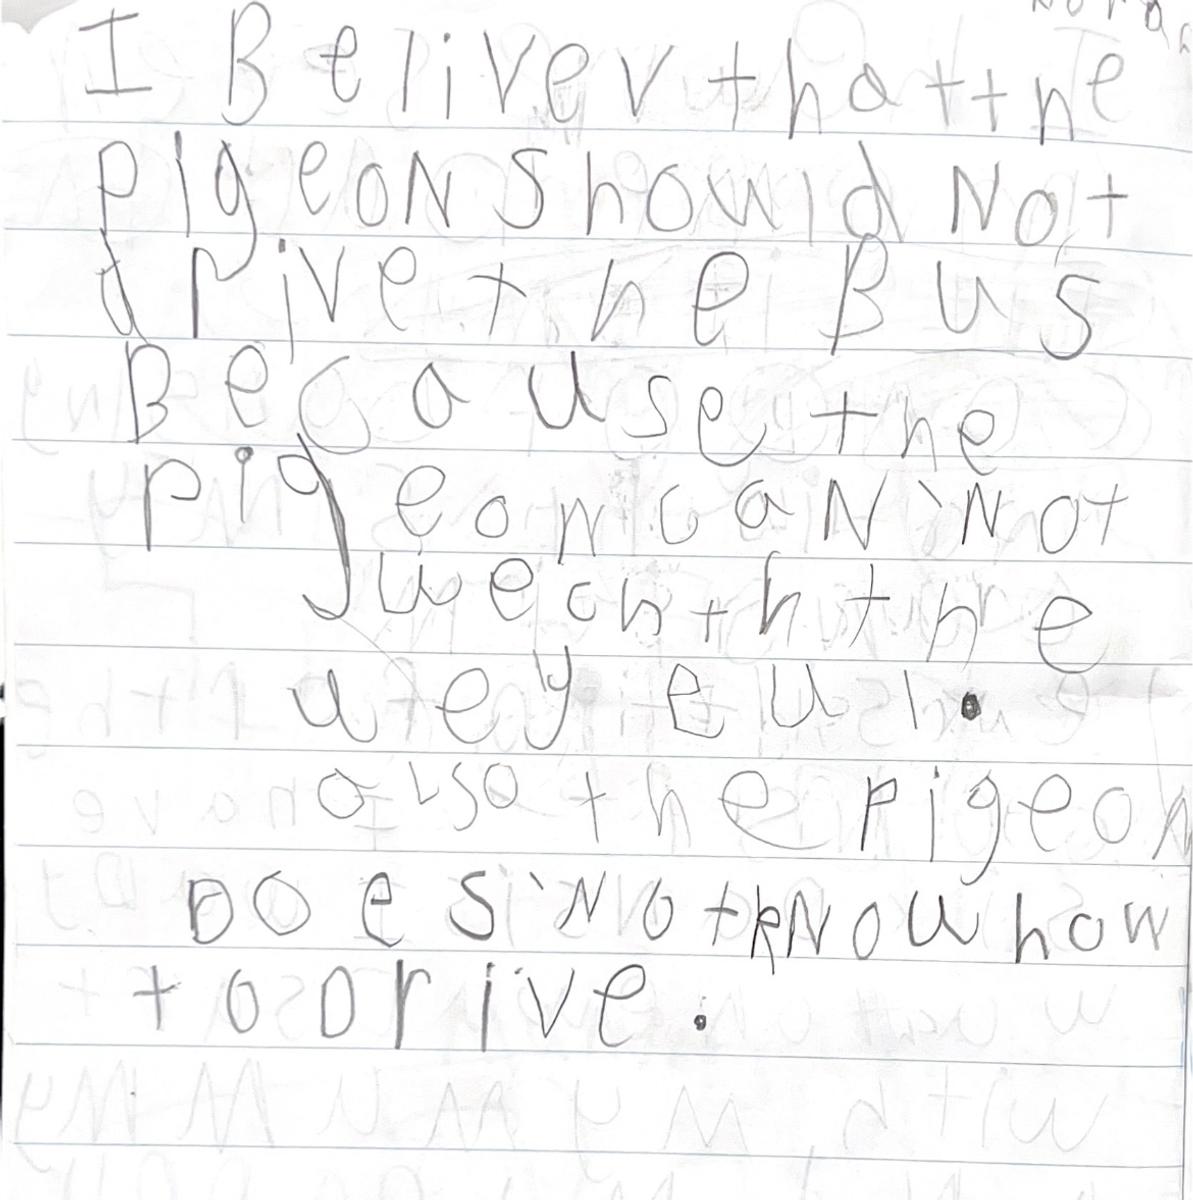 I Belivev that the
pigeoN Showld Not
drive the Bus
Because the
pigeon caN Not
weanh the
uey eul.
also the pigeon
Does Not kNow how
to Drive.